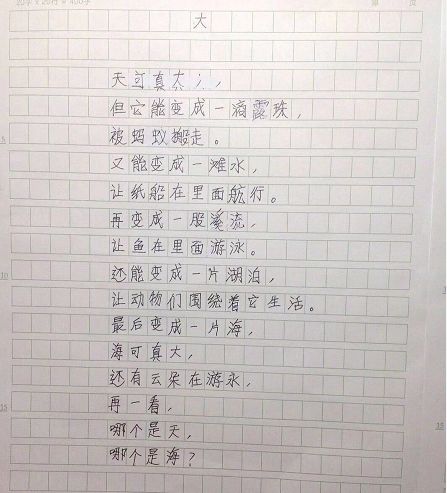 20字 x 20行 = 400字
第 页
大
天可真大;,
但它能变成一滴露珠,
被蚂蚁搬走。
又能变成一滩水,
5
让纸船在里面航行。
再变成一股溪流,
让鱼在里面游泳。
还能变成一片湖泊,
10
让动物们围绕着它生活。
最后变成一片海,
海可真大,
还有云朵在游永,
再一看,
15
哪个是天,
哪个是海?